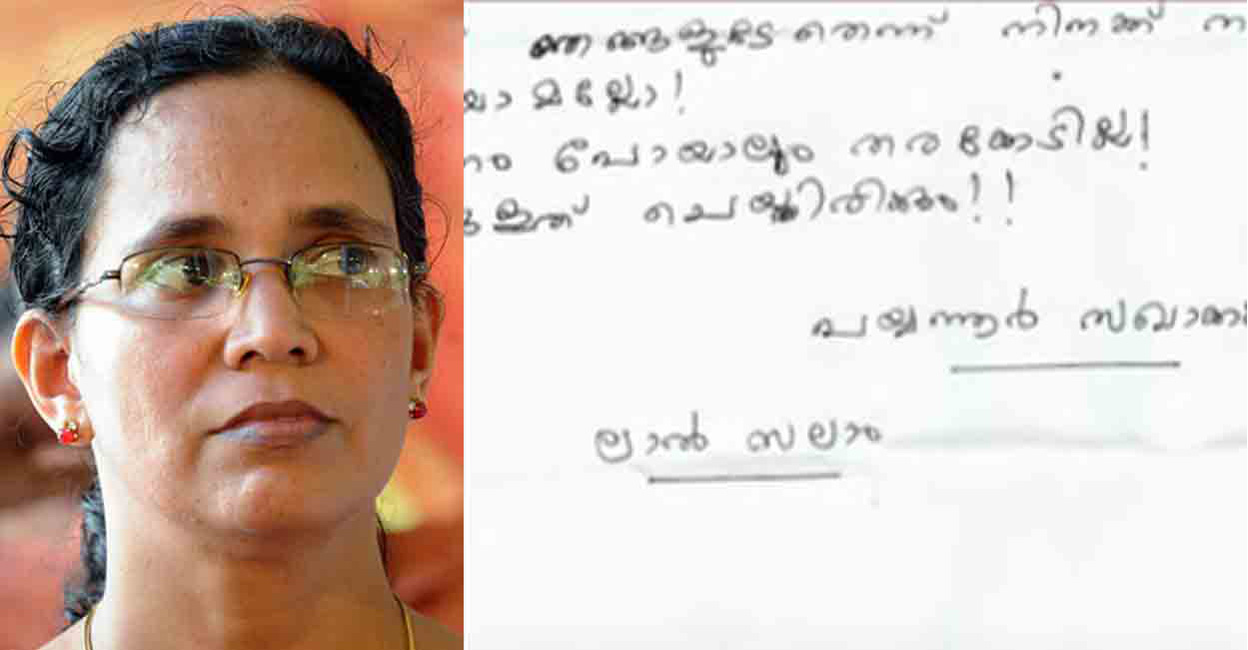 ഞങ്ങളുടേതെന്ന് നിനക്ക്
യാമല്ലോ!
പോയാലും തരക്കേടില്ല!
ഇത് ചെയ്തിരിക്കും!!
പയ്യന്നൂർ സഖാക്കൾ
ലാൽ സലാം